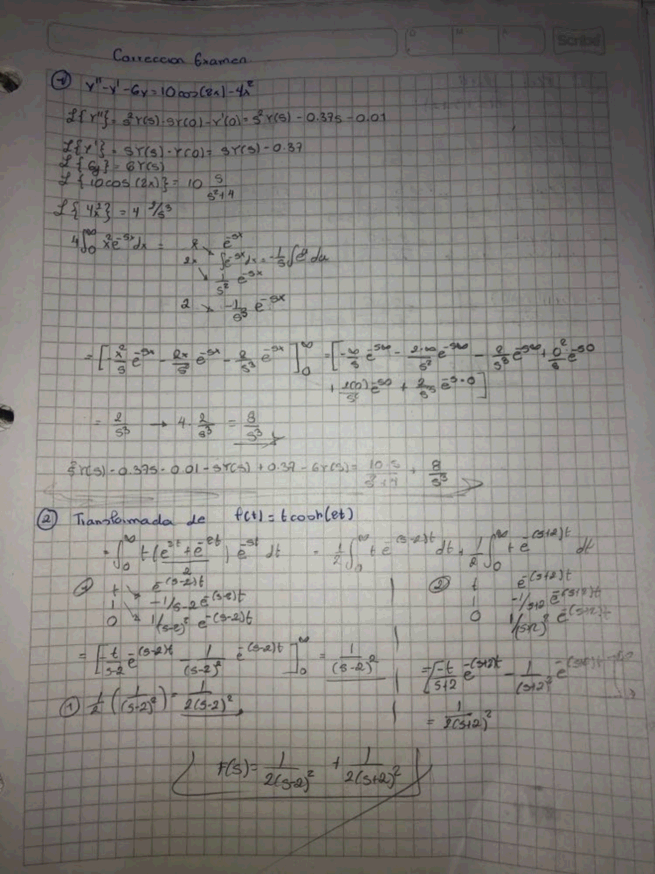 Scribe
Correccion Examen
① y'' - y' - 6y = 10cos(2x) - 4x²
L{y''} = s²Y(s) - sY(0) - Y'(0) = s²Y(s) - 0.37s - 0.01
L{y'} = sY(s) - Y(0) = sY(s) - 0.37
L{6y} = 6Y(s)
L{10cos(2x)} = 10 s/(s²+4)
L{4x²} = 4 2/s³
4∫₀^∞ x²e^(-sx)dx =
2x ∫e^(-sx)dx = -1/s ∫e^u du
1/s² e^(-sx)
2 -1/s³ e^(-sx)
= [-x²/s e^(-sx) - 2x/s² e^(-sx) - 2/s³ e^(-sx)]₀^∞ = [-∞/s e^(-s∞) - 2·∞/s² e^(-s∞) - 2/s³ e^(-s∞) + 0²/s e^(-s0)
+ 2(0)/s² e^(-s0) + 2/s³ e^(-s·0)]
= 2/s³ → 4 · 2/s³ = 8/s³
s²Y(s) - 0.37s - 0.01 - sY(s) + 0.37 - 6Y(s) = 10·s/(s²+4) + 8/s³
② Transformada de f(t) = t cosh(2t)
= ∫₀^∞ t (e^(2t) + e^(-2t))/2 ) e^(-st) dt = 1/2 ∫₀^∞ t e^(-(s-2)t) dt + 1/2 ∫₀^∞ t e^(-(s+2)t) dt
t e^(-(s-2)t)
1 -1/s-2 e^(-(s-2)t)
0 1/(s-2)² e^(-(s-2)t)
= [-t/(s-2) e^(-(s-2)t) - 1/(s-2)² e^(-(s-2)t)]₀^∞ = 1/(s-2)²
① 1/2 (1/(s-2)²) = 1/2(s-2)²
② t e^(-(s+2)t)
1 -1/s+2 e^(-(s+2)t)
0 1/(s+2)² e^(-(s+2)t)
= [-t/(s+2) e^(-(s+2)t) - 1/(s+2)² e^(-(s+2)t)]₀^∞
= 1/2(s+2)²
F(s) = 1/2(s-2)² + 1/2(s+2)²